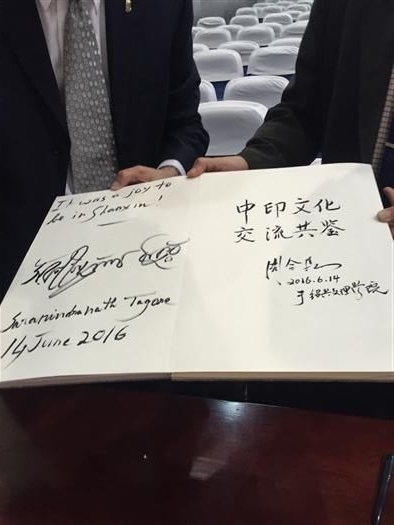 It was a joy to
be in Shaoxin !
Saranindranath Tagore
14 June 2016
中印文化
交流共鉴
周令飞
2016.6.14
于绍兴文理学院